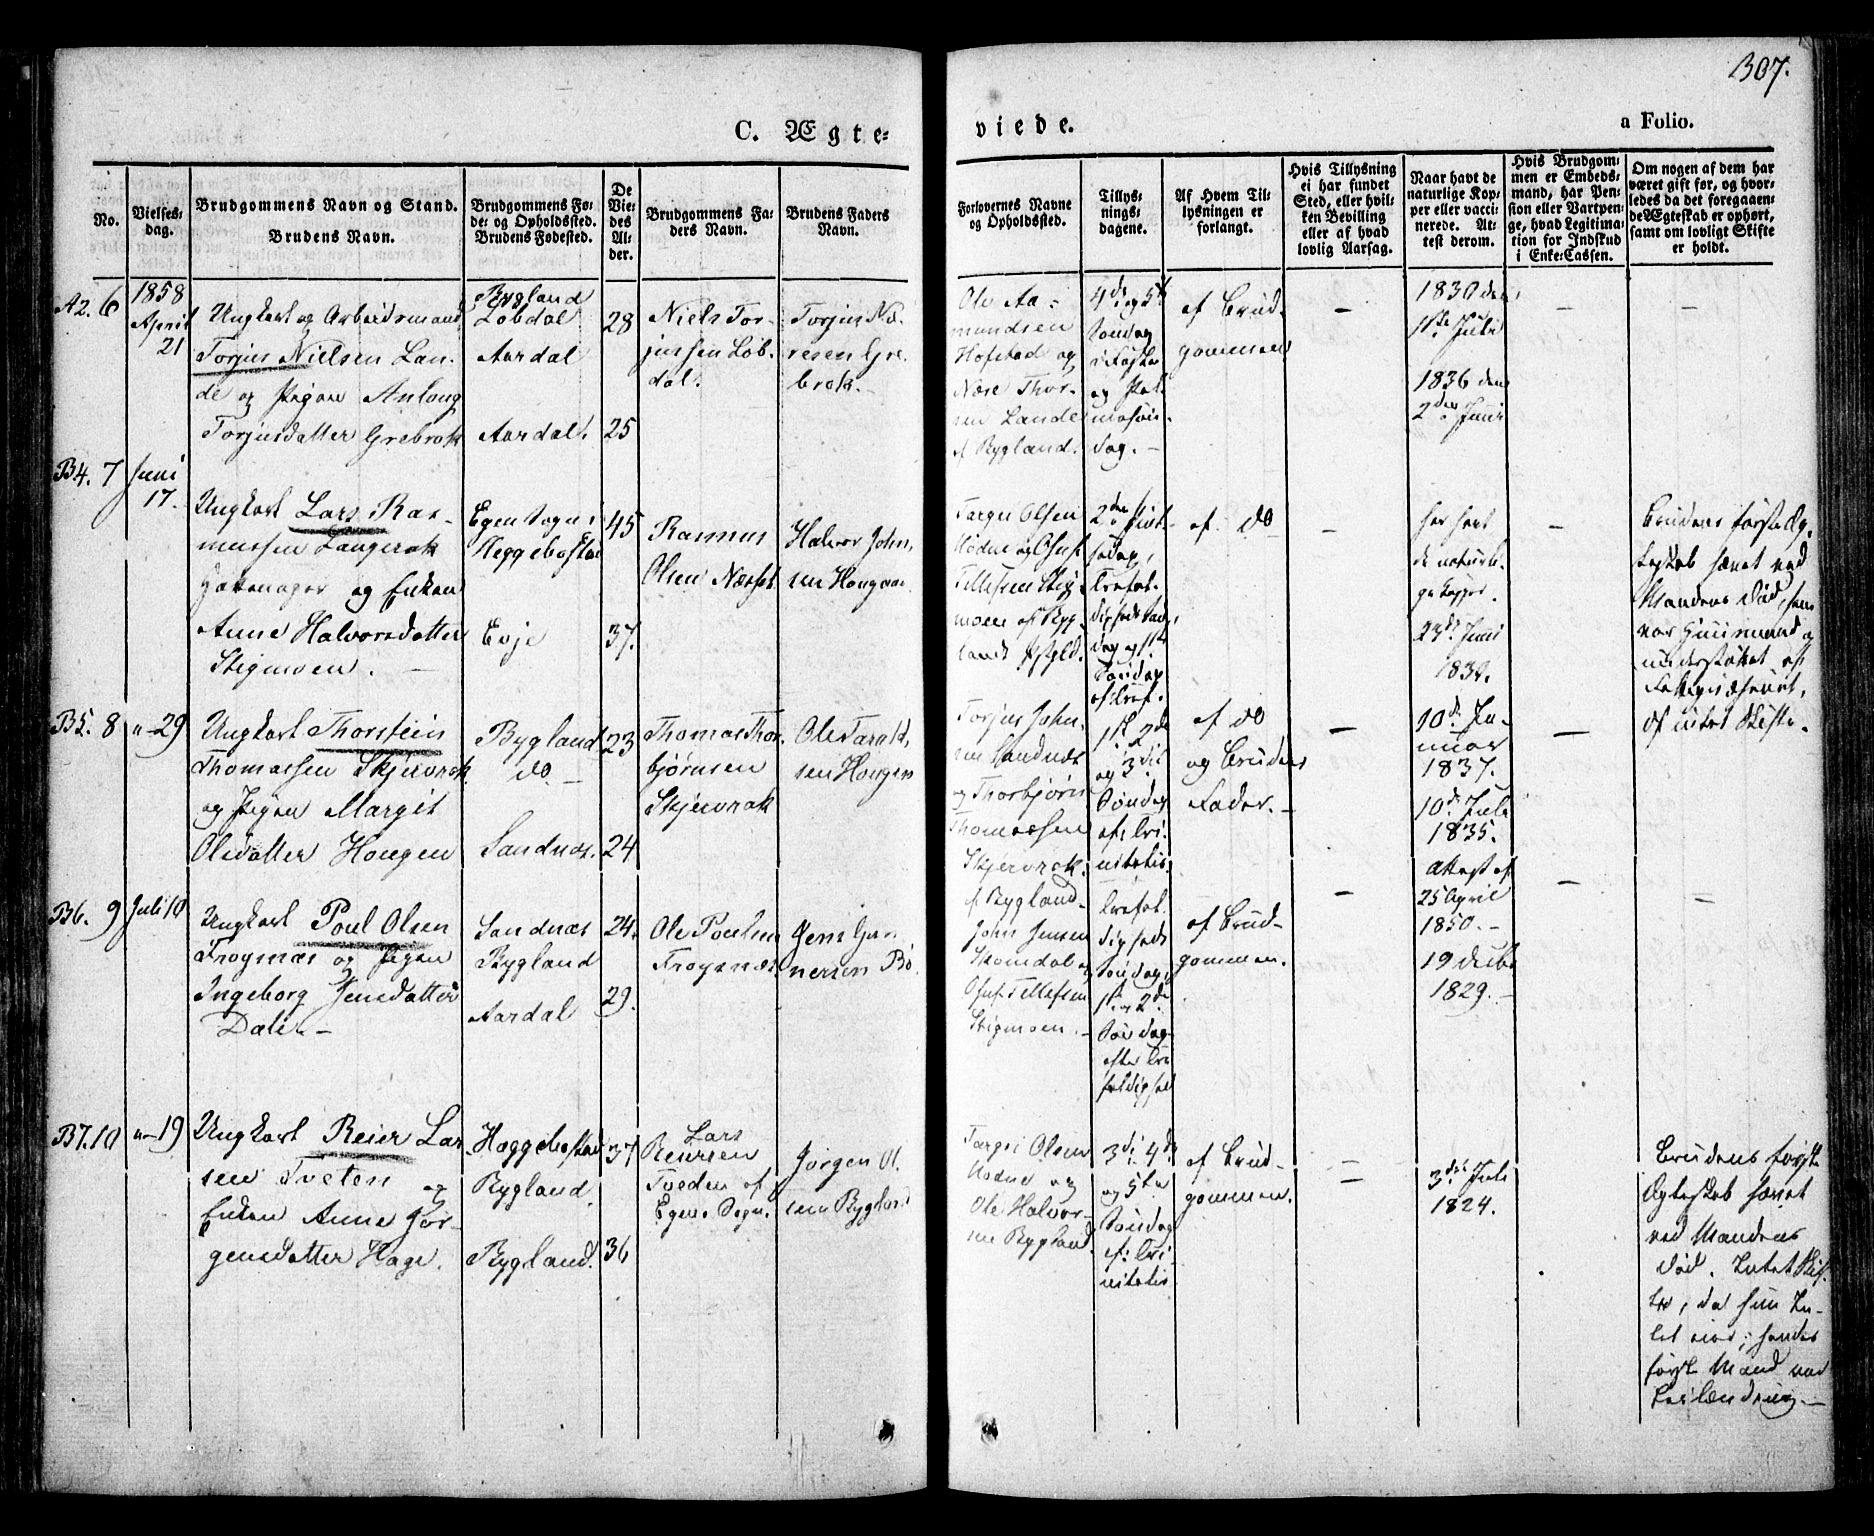 307.
C. Ægte=
viede.
a Folio.
No.
Vielses=
dag.
Brudgommens Navn og Stand.
Brudens Navn.
Brudgommens Fø=
de= og Opholdssted.
Brudens Fødested.
De
Vie=
des
Al=
der.
Brudgommens Fa=
ders Navn.
Brudens Faders
Navn.
Forlovernes Navne
og Opholdssted.
Tillys=
nings=
dagene.
Af Hvem Til=
lysningen er
forlangt.
Hvis Tillysning
ei har fundet
Sted, eller hvil=
ken Bevilling
eller af hvad
lovlig Aarsag.
Naar havt de
naturlige Kop=
per eller vacci=
nerede. At=
test derom.
Hvis Brudgom=
men er Embeds=
mand, har Pen=
sion eller Vartpen=
ge, hvad Legitima=
tion for Indskud
i Enke=Cassen.
Om nogen af dem har
været gift før, og hvor=
ledes da det foregaaen=
de Ægteskab er ophørt,
samt om lovligt Skifte
er holdt.
A2. 6
1858
April
21
Ungkarl og Arbeidsmand
Torjus Nielsen Lan-
de og Pigen Anlaug
Torjusdatter Grebrok
Bygland
Lobdal
Aardal
Aardal.
28
25
Niels Tor-
jussen Lob-
dal.
Torjus Næ-
resen Gre-
brok.
Ole Aa-
mundsen
Hofstad og
Nære Thor-
sen Lande
af Bygland.
4de og 5te
Søndag
i Faste
og Pal-
mesøn-
dag. -
af Brud-
gommen
-
1830 den
1ste Juli
1836 den
2den Juni
-
-
B4. 7
Juni
17.
Ungkarl Lars Ras-
mussen Langerak
og Enken
Anne Halvorsdatter
Stigmoen.
Egen Sogn,
Heggebostad
Evje
45
37.
Rasmus
Olsen Næset
Halvor John-
sen Hougaas
Tarjei Olsen
Hodne og Osuf
Tellefsen Stig-
moen af Byg-
lands Præstgld.
2den Pint-
sedag,
Trefol-
digheds Søn-
dag og 1ste
Søndag
ef. Tref.
af do
-
har havt
de naturli-
ge Kopper.
23de Juni
-
Brudens første Æg-
teskab hævet ved
Mandens Død, som
var Huusmand og
understøttet af
Fattigvæsenet,
af intet Skifte.
B5. 8
"-29
Ungkarl Thorstein
Thomassen Skjevrak
og Pigen Margit
Olsdatter Hougen
Bygland
do -
Sandnæs.
23
24
Thomas Thor-
bjørnsen
Skjevrak
Ole Tarald-
sen Hougen
Torjus John-
sen Sandnæs
og Thorbjørn
Thomassen
Skjevrak
af Bygland-
1ste 2de
og 3die
Søndag
ef: Tri-
nitatis.
af do
og Brudens
Fader. -
-
10de Ja-
nuar
1837.
10de Juli
1835.
-
B6. 9
Juli 10
Ungkarl Poul Olsen
Frøysnæs og Pigen
Ingeborg Jensdatter
Dale. -
Sandnæs
Bygland
Aardal
24.
29.
Ole Poulsen
Frøysnæs
Jens Gun-
nersen Bø.
John Jensen
Skomdal og
Osuf Tellefsen
Stigmoen. -
Trefol-
digheds
Søndag,
1ste og 2de
Søndag
efter Tre-
foldighed
af Brud-
gommen.
-
Attest af
25 April
1850. -
19 Decbr
1829. -
-
-
B7. 10
"-19
Ungkarl Reier Lar-
sen Tveten og
Enken Anne Jør-
gensdatter Hage.
Heggebostad
Bygland
Bygland.
37
36
Lars
Reiersen
Tveden af
Egen. Sogn.
Jørgen Ol-
sen Bygland
Tarjei Olsen
Hodne og
Ole Halvor-
sen Bygland
3die 4de
og 5te
Søndag
ef: Tri-
nitatis.
af Brud-
gommen.
-
-
3die Juli
1824.
Brudens første
Ægteskab hævet
ved Mandens
Død. Intet Skif-
te, da hun In-
tet eier; hendes
første Mand var